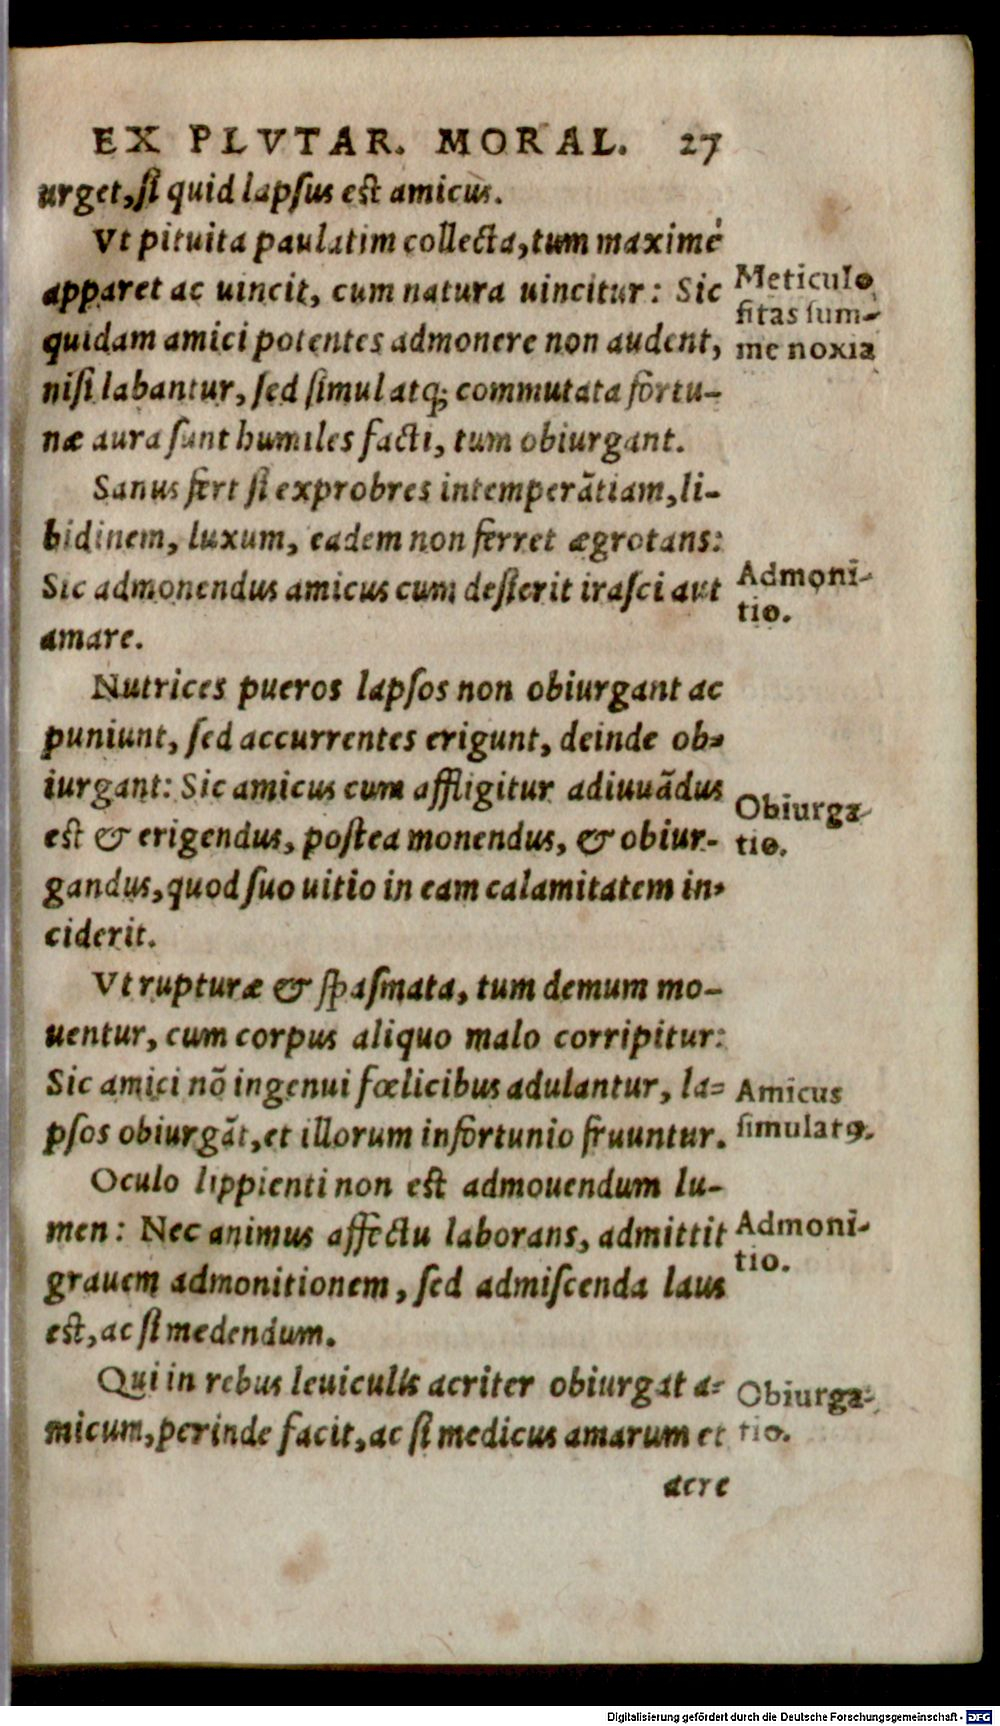 EX PLVTAR. MORAL. 27
urget, ſi quid lapſus est amicus.
Vt pituita paulatim collecta, tum maximè
apparet ac uincit, cum natura uincitur: Sic
quidam amici potentes admonere non audent,
niſi labantur, ſed ſimul atq; commutata fortu-
næ aura ſunt humiles facti, tum obiurgant.
Meticulo
ſitas ſum-
me noxia
Sanus fert ſi exprobres intemperãtiam, li-
bidinem, luxum, eadem non ferret ægrotans:
Sic admonendus amicus cum deſierit iraſci aut
amare.
Admoni-
tio.
Nutrices pueros lapſos non obiurgant ac
puniunt, ſed accurrentes erigunt, deinde ob-
iurgant: Sic amicus cum affligitur adiuuãdus
est & erigendus, poſtea monendus, & obiur-
gandus, quod ſuo uitio in eam calamitatem in-
ciderit.
Obiurga-
tio.
Vt rupturæ & ſpaſmata, tum demum mo-
uentur, cum corpus aliquo malo corripitur:
Sic amici nõ ingenui fœlicibus adulantur, la-
pſos obiurgãt, et illorum infortunio fruuntur.
Amicus
ſimulatꝰ.
Oculo lippienti non est admouendum lu-
men: Nec animus affectu laborans, admittit
grauem admonitionem, ſed admiſcenda laus
est, ac ſi medendum.
Admoni-
tio.
Qui in rebus leuiculis acriter obiurgat a-
micum, perinde facit, ac ſi medicus amarum et
Obiurga-
tio.
acre
Digitalisierung gefördert durch die Deutsche Forschungsgemeinschaft - DFG